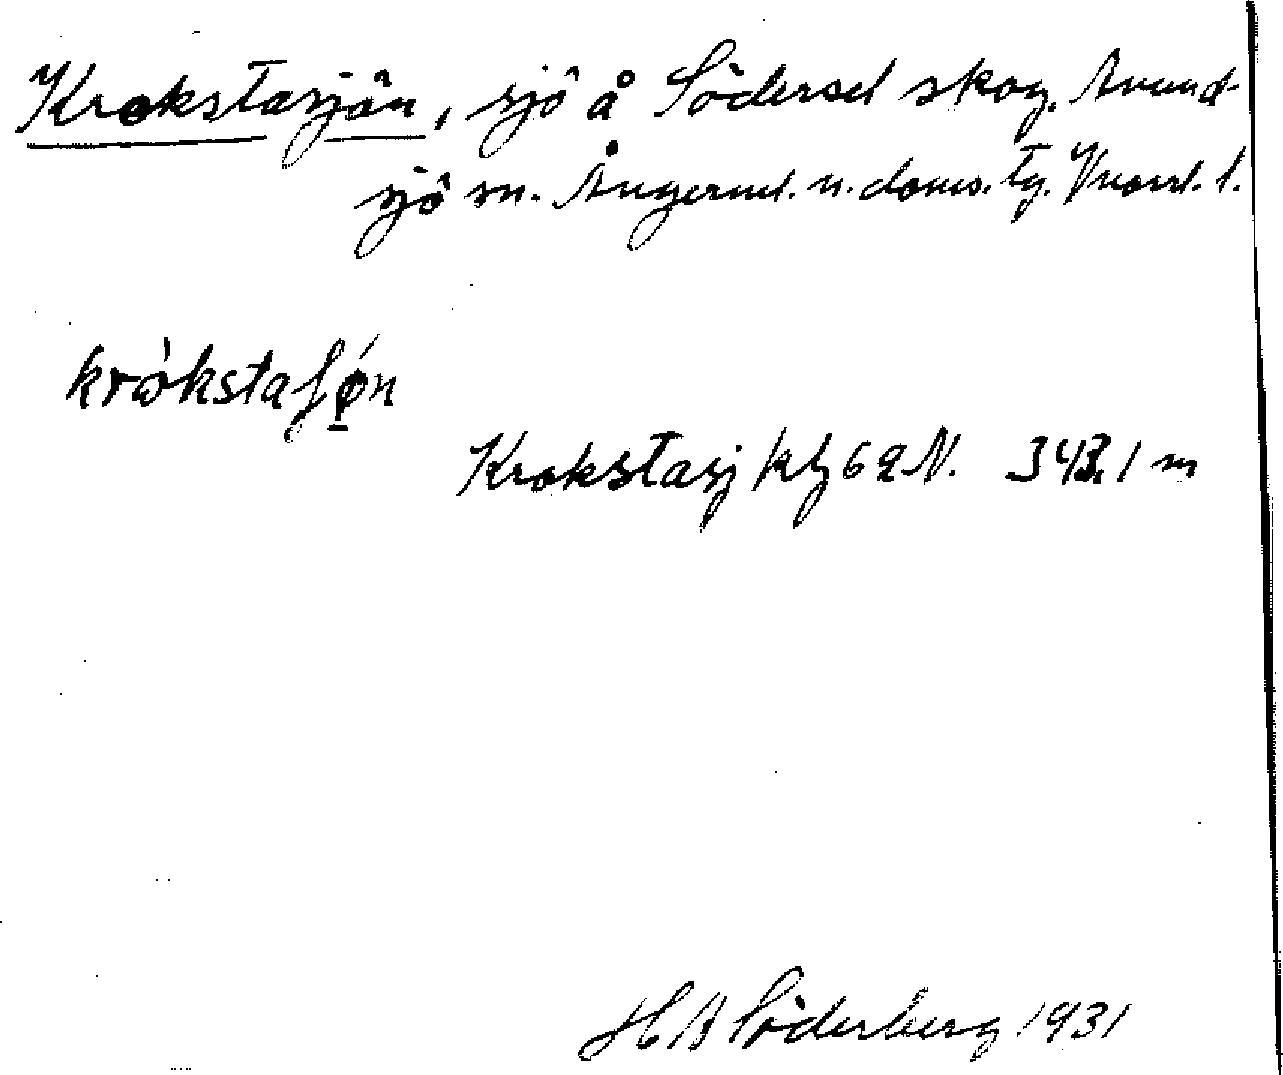 Krokstasjön, sjö å Södersel skog, Anund-
sjö sn. Ångerml. n. doms. tg. Vnorrl. l.
kròkstaʃǿn
Krokstasj kbl 62 N. 343,1 m
H A Söderberg 1931